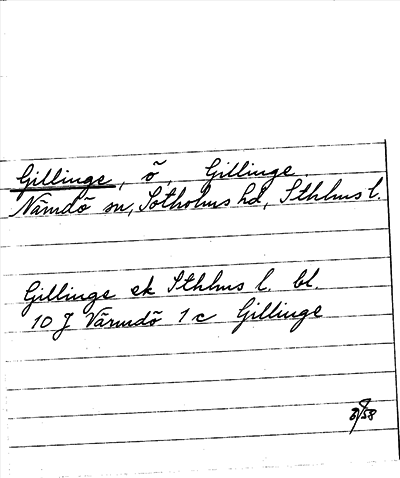 Gillinge, ö, Gillinge,
Nämdö sn, Sotholms hd, Sthlms l.
Gillinge ek Sthlms l. bl.
10 J Värmdö 1 c Gillinge